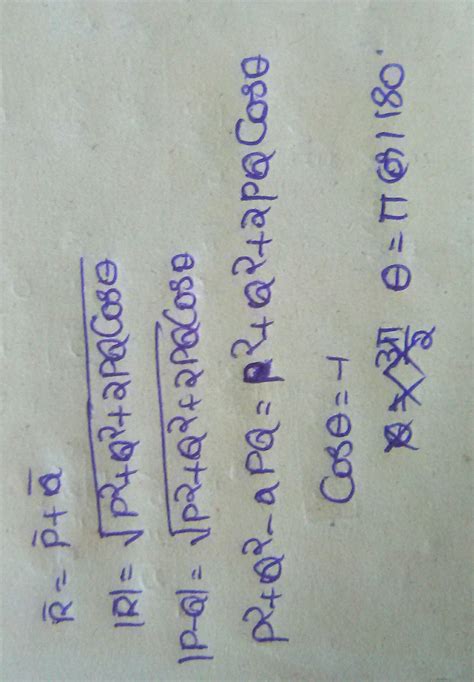 R̄ = P̄ + Q̄
|R| = √P²+Q²+2PQCosθ
|P-Q| = √P²+Q²+2PQCosθ
P²+Q²-2PQ = P²+Q²+2PQCosθ
Cosθ = -1
θ = 3π/2 θ = π (or) 180°